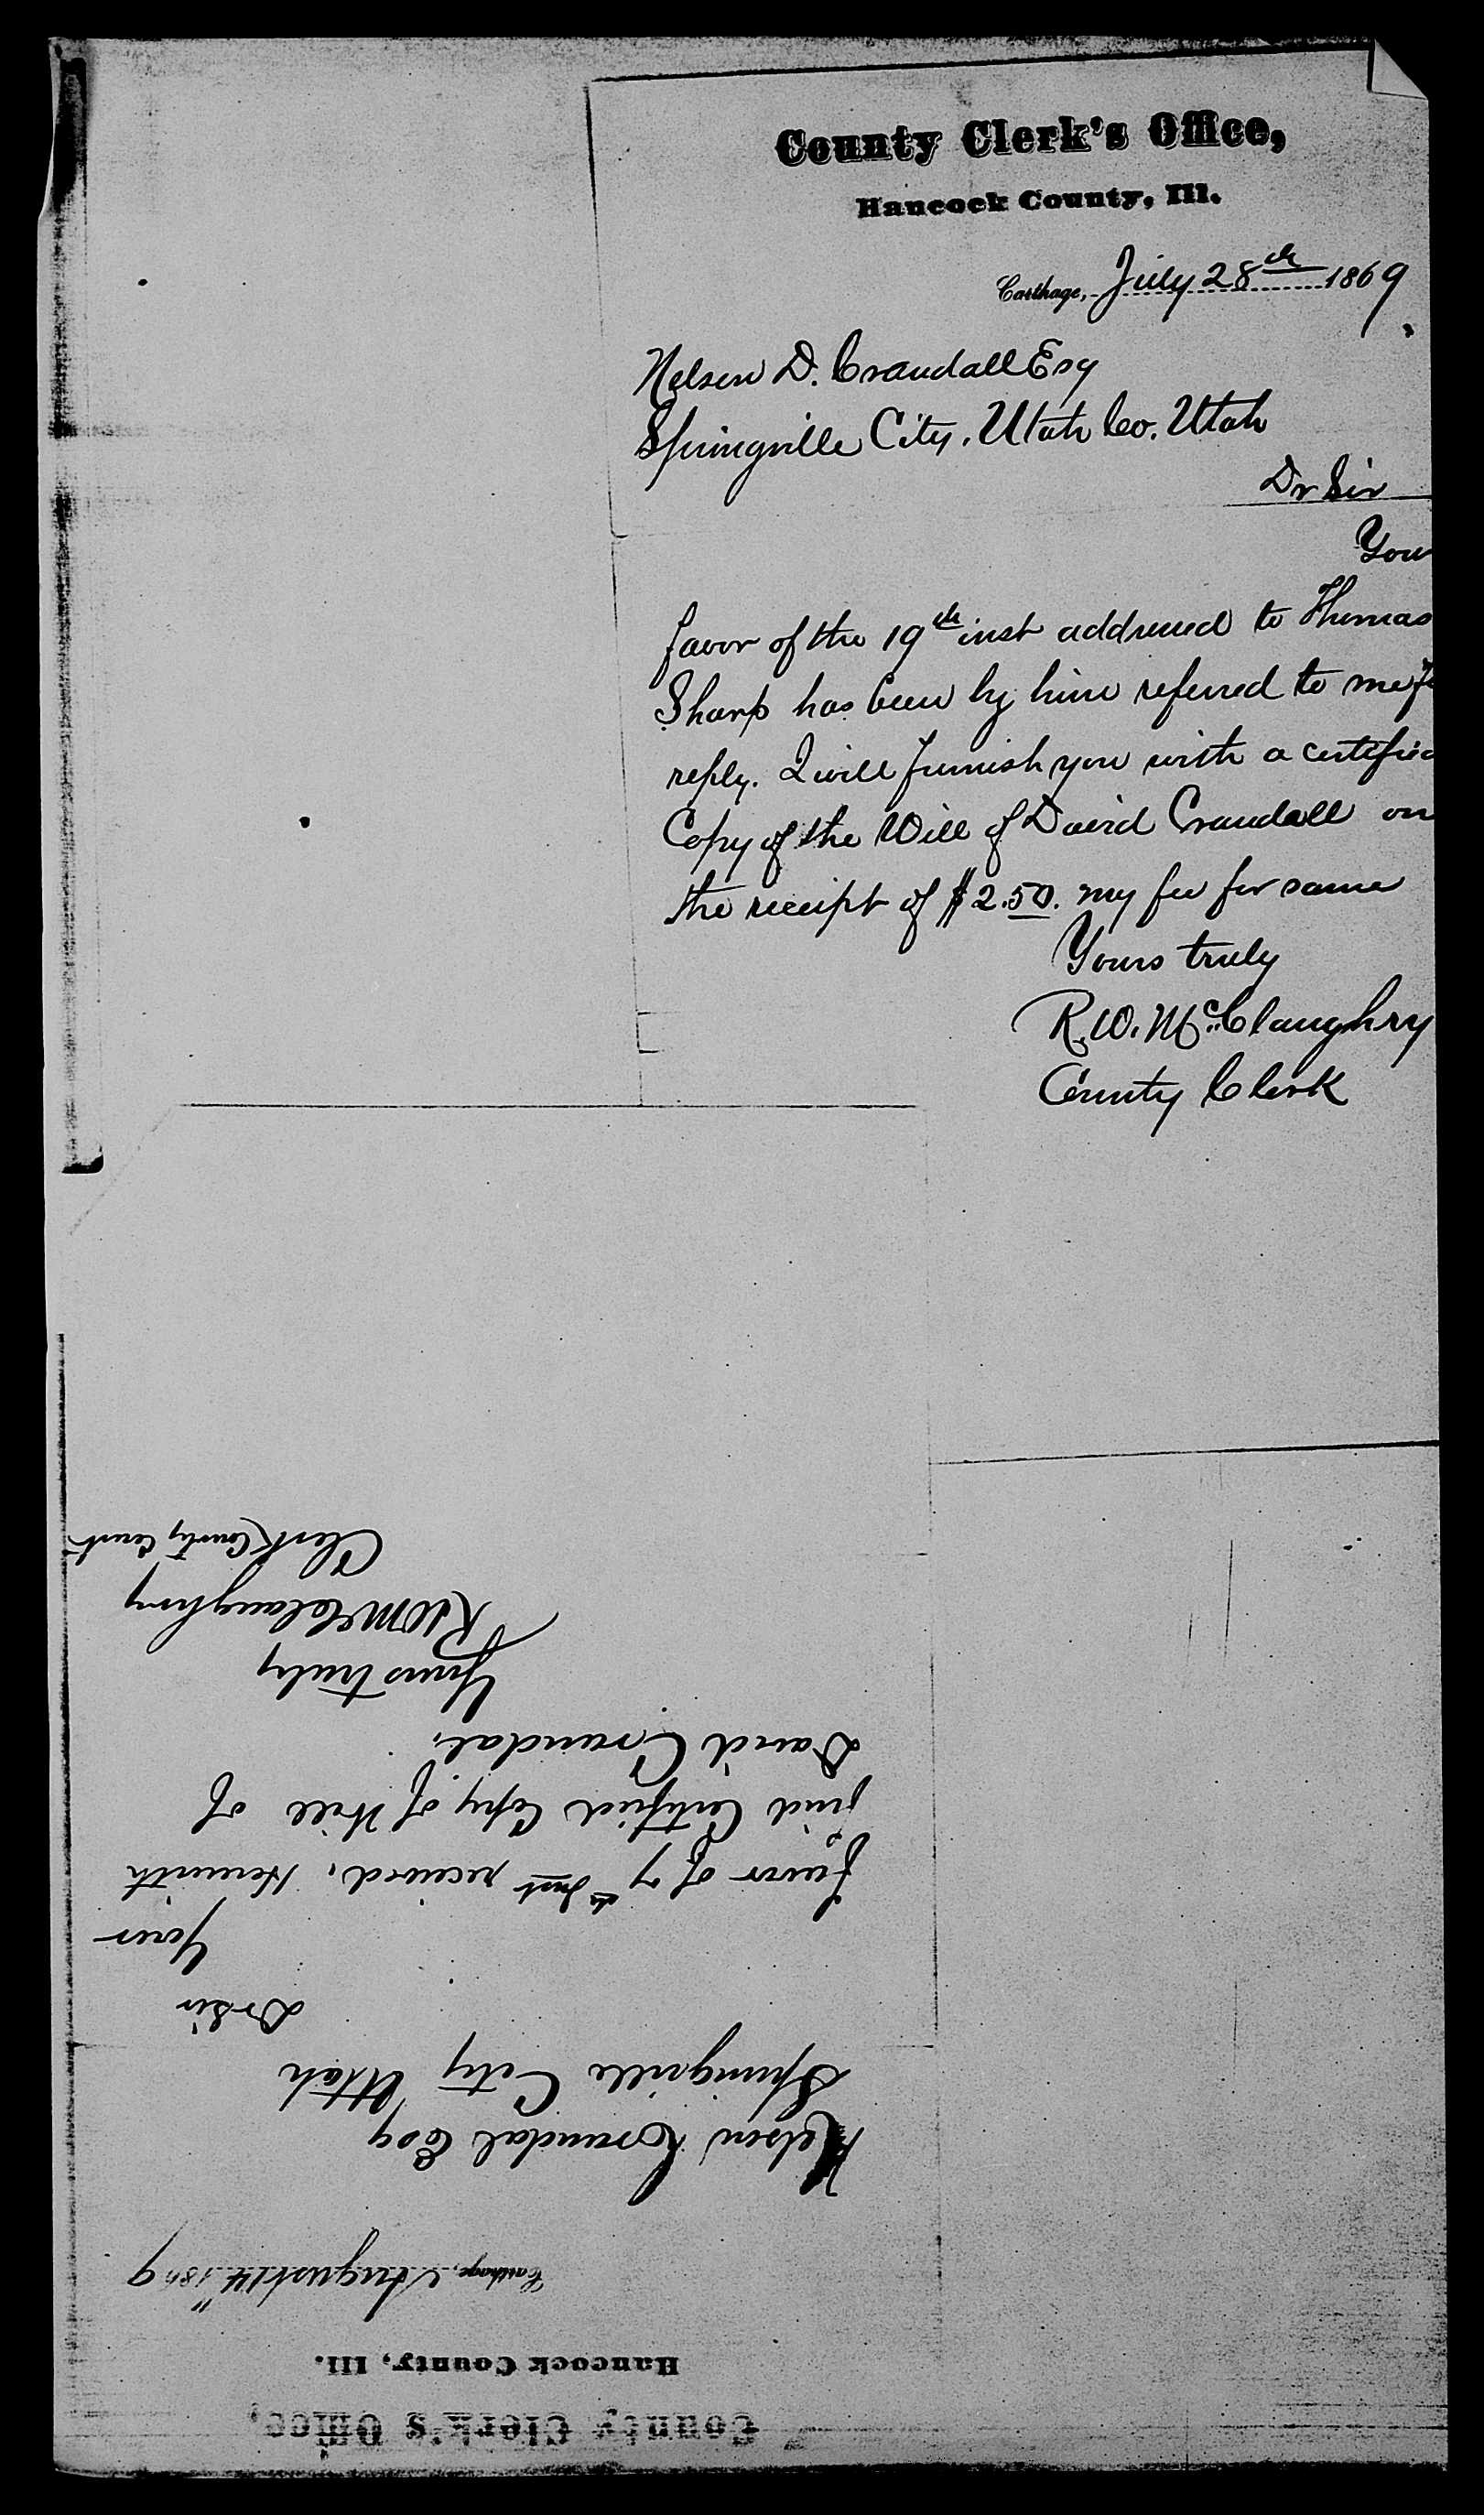 County Clerk's Office,
Hancock County, Ill.
Carthage, July 28th 1869
Nelson D. Crandall Esq
Springville City, Utah Co. Utah
Dr Sir
You
favor of the 19th inst addressed to Thomas
Sharp has been by him referred to me f
reply. I will furnish you with a certified
Copy of the Will of David Crandall on
the receipt of $2.50. my fee for same
Yours truly
R. W. McClaughry
County Clerk
County Clerk's Office,
Hancock County, Ill.
Carthage, August 14" 1869
Nelson Crandal Esq
Springville City Utah
Dr Sir
Your
favor of 7th Inst received. Herewith
find Certified Copy of Will of
David Crandal.
Yours truly
R W McClaughry
Clerk County Court